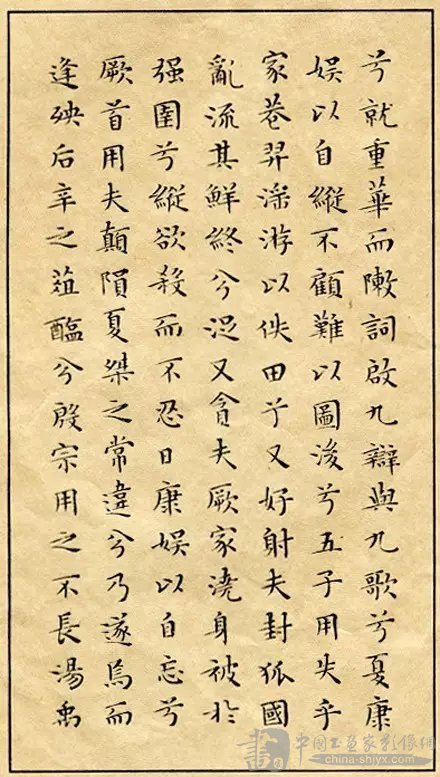 兮就重華而敶詞啟九辯與九歌兮夏康
娛以自縱不顧難以圖後兮五子用失乎
家巷羿淫游以佚田兮又好射夫封狐國
亂流其鮮終兮浞又貪夫厥家澆身被於
强圉兮縱欲殺而不忍日康娛以自忘兮
厥首用夫顛隕夏桀之常違兮乃遂焉而
逢殃后辛之菹醢兮殷宗用之不長湯禹
畫
中国书画家影像網
china-shjyx.com